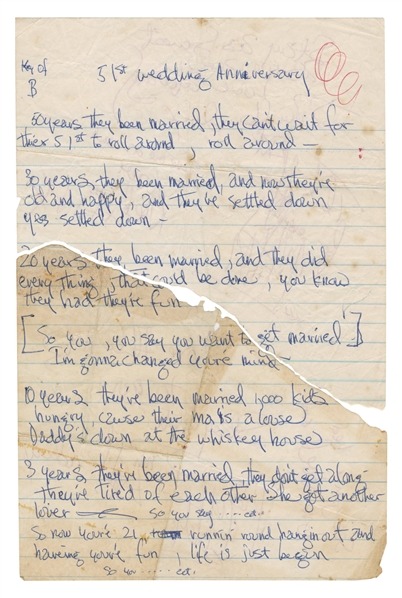 Key of
B
51st wedding Anniversary
50 years they been married, they cant wait for
their 51st to roll around, roll around —
30 years, they been married, and now they're
old and happy, and they've settled down
yes settled down —
20 years they been married, and they did
everything, that could be done, you know
they had they're fun
[So you, you say you want to get married]
I'm gonna changed you're mind
10 years they've been married 1,000 kids
hungry, cause their ma's a louse
Daddy's down at the whiskey house
3 years they've been married they don't get along
they're tired of each other she got another
lover So you say .... ect..
So now you're 21 runnin round hangin out and
haveing you're fun, life is just begun
So you .... ect.